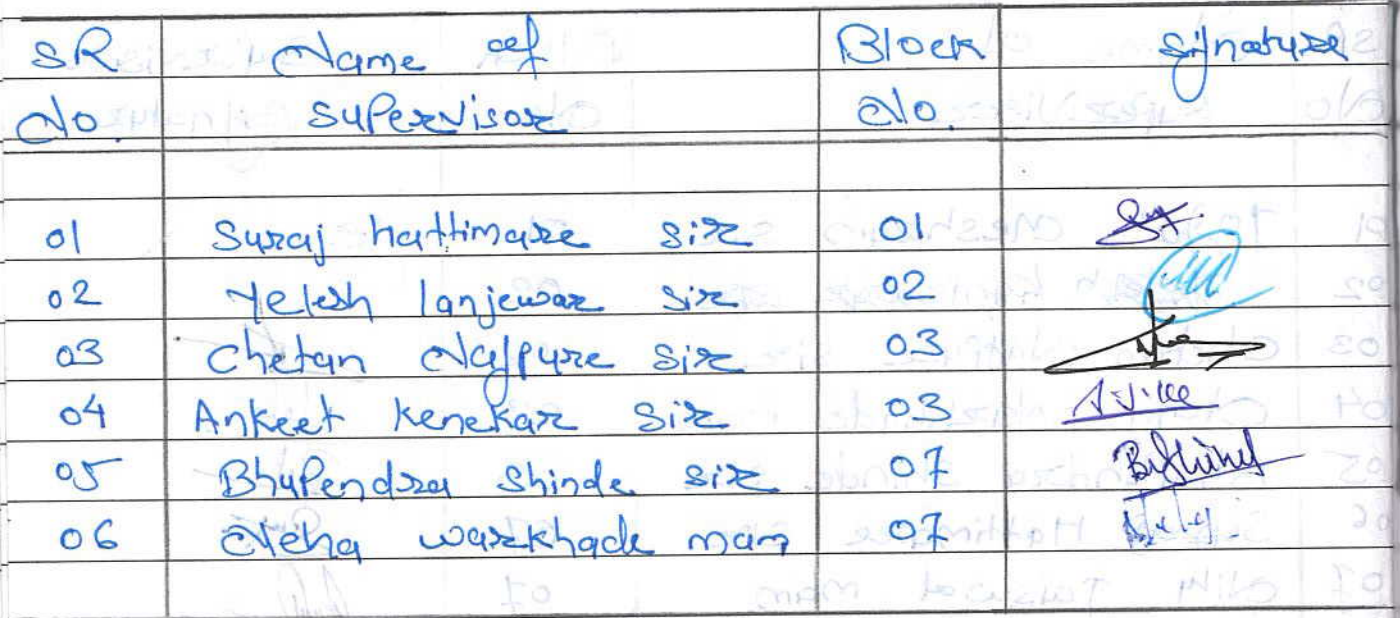 SR Name of Block Signature
No. Supervisor No.
01 Suraj hattimare sir 01
02 Yelesh lanjewar sir 02
03 Chetan Najpure sir 03
04 Ankeet Kenekar sir 03
05 Bhupendra Shinde sir 07
06 Neha warkhade mam 07